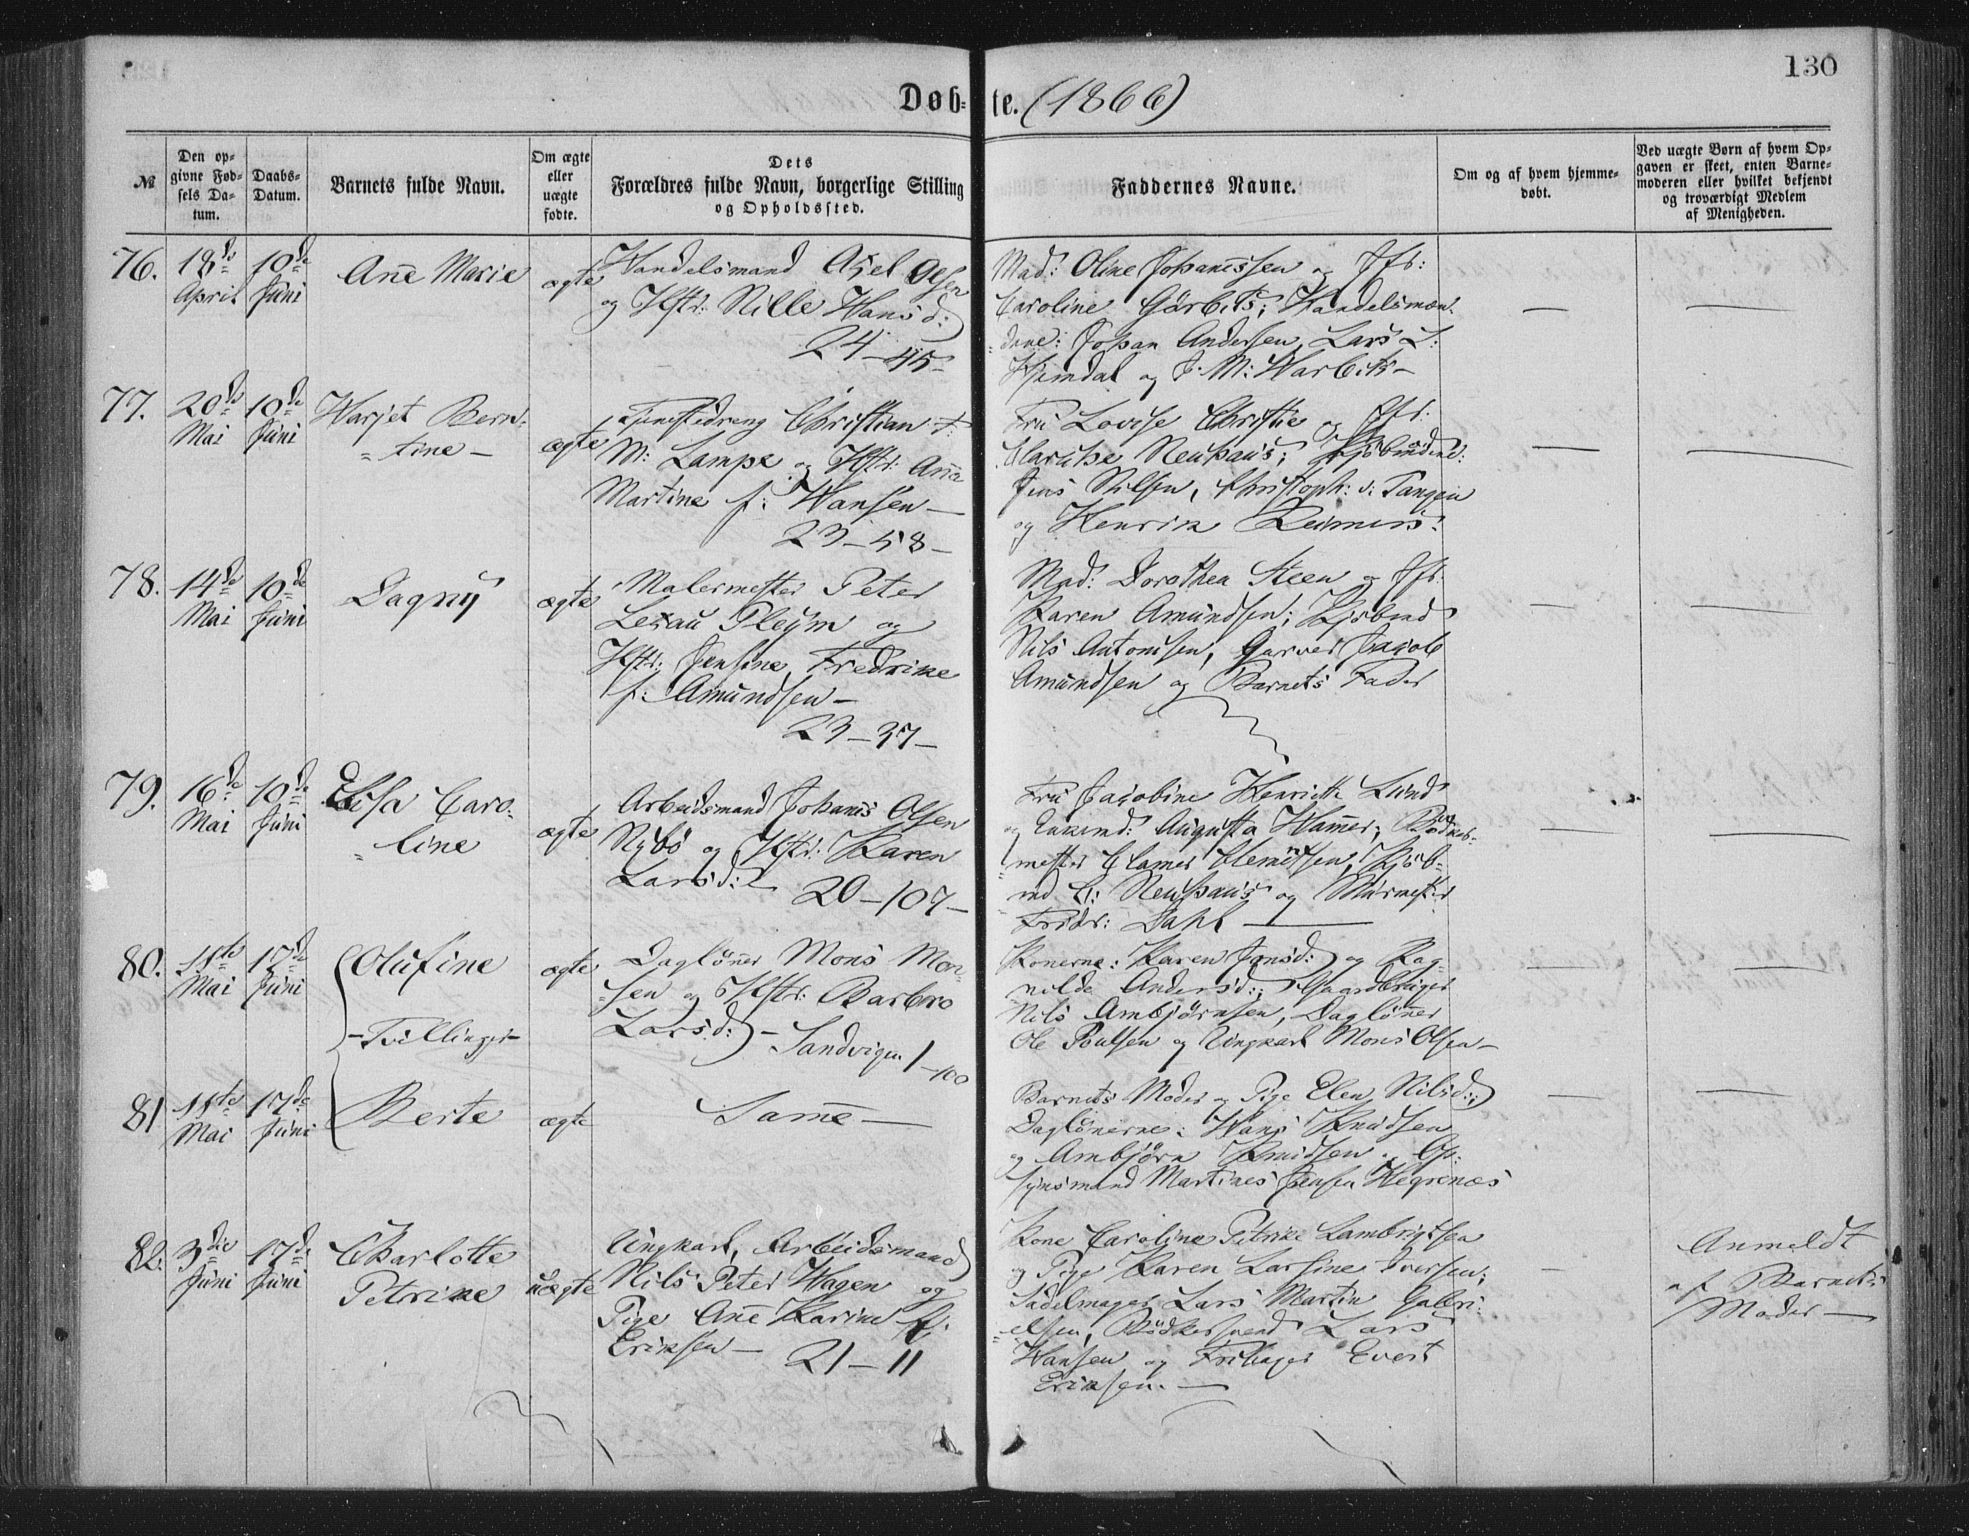 130
Døb- te. (1866)
№
Den op-
givne Fød-
sels Da-
tum.
Daabs-
Datum.
Barnets fulde Navn.
Om ægte
eller
uægte
fødte.
Dets
Forældres fulde Navn, borgerlige Stilling
og Opholdssted.
Faddernes Navne.
Om og af hvem hjemme-
døbt.
Ved uægte Børn af hvem Op-
gaven er skeet, enten Barne-
moderen eller hvilket bekjendt
og troværdigt Medlem
af Menigheden.
76.
18de
April
10de
Juni
Ane Marie
ægte
Handelsmand Axel Olsen
og Hstr: Nille Hansd:
24–45–
Mad: Oline Johanessen og Jfr:
Caroline Garbits; Handelsmæn-
dene: Johan Andersen, Lars L:
Hjemdal og J. M: Warbits–
77.
20de
Mai
10de
Juni
Harjet Bern-
tine –
ægte
Tjenestedreng Christian F:
M: Lampe og Hstr: Anna
Martine f: Hansen –
23–58–
Fru Lovise Christie og Jfr:
Maruhe Neuhaus; Kjøbmændene:
Jens Nilsen, Christoph: v: Tangen
og Henrik Reimers.
78.
14de
Mai
10de
Juni
Dagny
ægte
Malermester Peter
Lexau Pleym og
Hstr: Jensine Fredrikke
f: Amundsen –
23–37–
Mad: Dorothea Steen og Jfr:
Karen Amundsen; Kjøbmd
Nils Antonisen, Garver Jacob
Amundsen og Barnets Fader
79.
16de
Mai
10de
Juni
Elisa Caro-
line
ægte
Arbeidsmand Johanes Olsen
Nybø og Hstr: Karen
Larsd:
20–107–
Fru Jacobine Henriette Lund
og Enkemd: Augusta Hamer; Bødker-
mester Clamer Clemetsen, Kjøb-
md C: Neuhaus og Murmester
Fridr: Dahl
80.
11te
Mai
17de
Juni
Olufine
– Tvillinger –
ægte
Dagløner Mons Mon-
sen og Hstr: Barbro
Larsd: –
Sandvigen 1–100
Konerne: Karen Jonsd: og Rag-
nilde Andersd:; Gaardbruger
Nils Ambjørnsen, Dagløner
Ole Poulsen og Ungkarl Mons Olsen –
81
11te
Mai
17de
Juni
Berte
ægte
Samme –
Barnets Moder og Pige Elen Nilsd:;
Dagløenerne: Hans Knudsen
og Ambjørn Knudsen, Op-
synsmand Martines Jensen Hegrenæs
82.
3die
Juni
17de
Juni
Charlotte
Petrine
uægte
Ungkarl, Arbeidsmand
Nils Peter Hagen og
Pige Ane Karine f:
Eriksen –
21–11
Kone Caroline Petrike Lambrigtsen
og Pige Karen Larsine Iversen;
Sadelmager Lars Martin Gabri-
elsen, Bødkersvend Lars
Hansen og Feilhager Evert
Eriksen. –
Anmeldt
af Barnets
Moder –